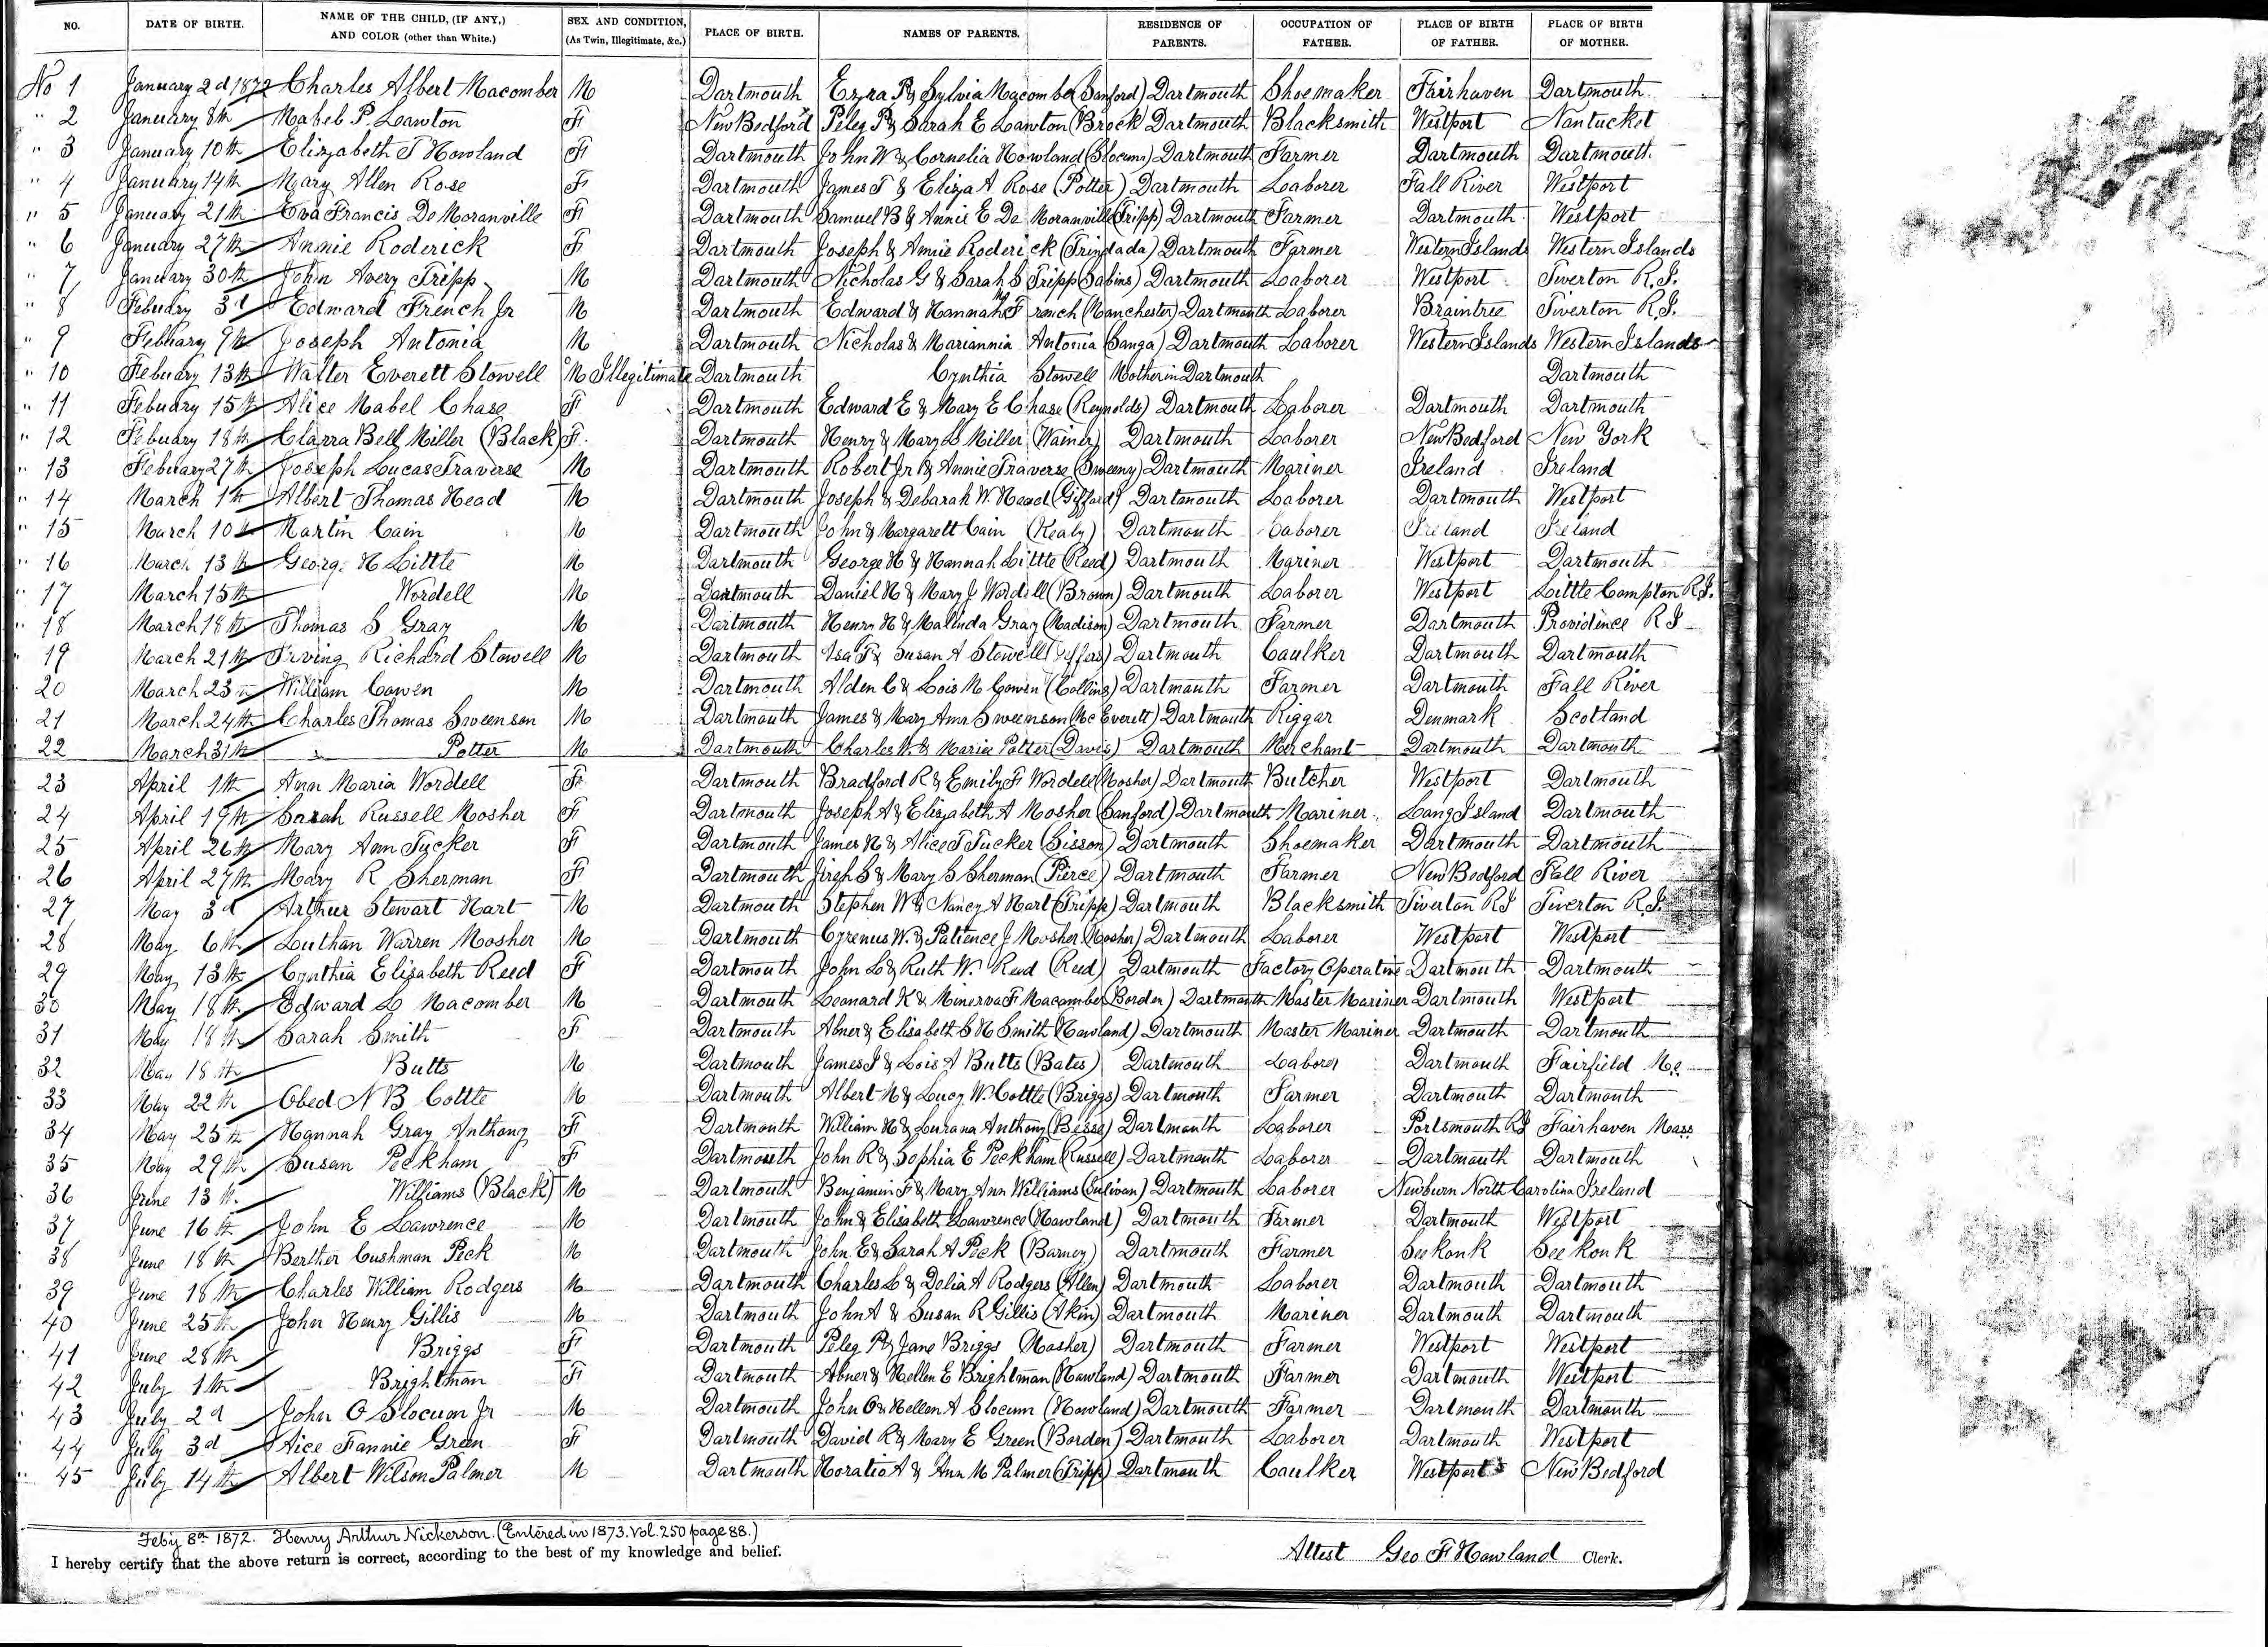 NO. DATE OF BIRTH. NAME OF THE CHILD, (IF ANY,) AND COLOR (other than White.) SEX AND CONDITION, (As Twin, Illegitimate, &c.) PLACE OF BIRTH. NAMES OF PARENTS. RESIDENCE OF PARENTS. OCCUPATION OF FATHER. PLACE OF BIRTH OF FATHER. PLACE OF BIRTH OF MOTHER.
No 1 January 2d 1872 Charles Albert Macomber M Dartmouth Ezra P & Sylvia Macomber (Sanford) Dartmouth Shoemaker Fairhaven Dartmouth
" 2 January 8th Mabel P. Lawton F New Bedford Peleg P & Sarah E Lawton (Brock) Dartmouth Blacksmith Westport Nantucket
" 3 January 10th Elizabeth T Howland F Dartmouth John W & Cornelia Howland (Slocum) Dartmouth Farmer Dartmouth Dartmouth
" 4 January 14th Mary Allen Rose F Dartmouth James T & Eliza A Rose (Potter) Dartmouth Laborer Fall River Westport
" 5 January 21th Eva Francis De Moranville F Dartmouth Samuel B & Annie E De Moranville (Tripp) Dartmouth Farmer Dartmouth Westport
" 6 January 27th Annie Roderick F Dartmouth Joseph & Annie Roderick (Trindada) Dartmouth Farmer Western Islands Western Islands
" 7 January 30th John Avery Tripp M Dartmouth Nicholas G & Sarah S Tripp (Sabins) Dartmouth Laborer Westport Tiverton R.I.
" 8 Febuary 3d Edward French Jr M Dartmouth Edward & Hannah M French (Manchester) Dartmouth Laborer Braintree Tiverton R.I.
" 9 Febuary 9th Joseph Antonia M Dartmouth Nicholas & Mariannia Antonia (Sanga) Dartmouth Laborer Western Islands Western Islands
" 10 Febuary 13th Walter Everett Stowell M Illegitimate Dartmouth Cynthia Stowell Mother in Dartmouth Dartmouth
" 11 Febuary 15th Alice Mabel Chase F Dartmouth Edward E & Mary E Chase (Reynolds) Dartmouth Laborer Dartmouth Dartmouth
" 12 Febuary 18th Clarra Bell Miller (Black) F. Dartmouth Henry & Mary L Miller (Wainer) Dartmouth Laborer New Bedford New York
" 13 Febuary 27th Joseph Lucas Traverse M Dartmouth Robert Jr & Annie Traverse (Sweeny) Dartmouth Mariner Ireland Ireland
" 14 March 1th Albert Thomas Head M Dartmouth Joseph & Debarah W. Head (Gifford) Dartmouth Laborer Dartmouth Westport
" 15 March 10th Martin Cain M Dartmouth John & Margarett Cain (Kealy) Dartmouth Laborer Ireland Ireland
" 16 March 13th George H Little M Dartmouth George H & Hannah Little (Reed) Dartmouth Mariner Westport Dartmouth
" 17 March 15th Wordell M Dartmouth Daniel H & Mary J Wordell (Brown) Dartmouth Laborer Westport Little Compton R.I.
" 18 March 18th Thomas S Gray M Dartmouth Henry H & Malinda Gray (Madison) Dartmouth Farmer Dartmouth Providence R I
" 19 March 21th Irving Richard Stowell M Dartmouth Asa T & Susan A Stowell (Jeffers) Dartmouth Caulker Dartmouth Dartmouth
" 20 March 23 William Cowen M Dartmouth Alden C & Lois M Cowen (Collins) Dartmouth Farmer Dartmouth Fall River
" 21 March 24th Charles Thomas Sweenson M Dartmouth James & Mary Ann Sweenson (Mc Everett) Dartmouth Riggar Denmark Scotland
" 22 March 31th Potter M Dartmouth Charles W. & Maria Potter (Davis) Dartmouth Merchant Dartmouth Dartmouth
" 23 April 1th Ann Maria Wordell F Dartmouth Bradford R & Emily F Wordell (Mosher) Dartmouth Butcher Westport Dartmouth
" 24 April 19th Sarah Russell Mosher F Dartmouth Joseph A & Elizabeth A Mosher (Sanford) Dartmouth Mariner Long Island Dartmouth
" 25 April 26th Mary Ann Tucker F Dartmouth James H & Alice T Tucker (Sisson) Dartmouth Shoemaker Dartmouth Dartmouth
" 26 April 27th Mary R Sherman F Dartmouth Jireh S & Mary S Sherman (Pierce) Dartmouth Farmer New Bedford Fall River
" 27 May 3d Arthur Stewart Hart M Dartmouth Stephen W & Nancy A Hart (Tripp) Dartmouth Blacksmith Tiverton R I Tiverton R.I.
" 28 May 6th Luthan Warren Mosher M Dartmouth Cyrenus W. & Patience J Mosher (Mosher) Dartmouth Laborer Westport Westport
" 29 May 13th Cynthia Elizabeth Reed F Dartmouth John L & Ruth W. Reed (Reed) Dartmouth Factory Operative Dartmouth Dartmouth
" 30 May 18th Edward L Macomber M Dartmouth Leonard K & Minerva F Macomber (Borden) Dartmouth Master Mariner Dartmouth Westport
" 31 May 18th Sarah Smith F Dartmouth Abner & Elisabeth S H Smith (Howland) Dartmouth Master Mariner Dartmouth Dartmouth
" 32 May 18th Butts M Dartmouth James I & Lois A Butts (Bates) Dartmouth Laborer Dartmouth Fairfield Me.
" 33 May 22th Obed N B Cottle M Dartmouth Albert N & Lucy W. Cottle (Briggs) Dartmouth Farmer Dartmouth Dartmouth
" 34 May 25th Hannah Gray Anthony F Dartmouth William H & Lurana Anthony (Besse) Dartmouth Laborer Portsmouth RI Fairhaven Mass
" 35 May 29th Susan Peckham F Dartmouth John R & Sophia E Peckham (Russell) Dartmouth Laborer Dartmouth Dartmouth
" 36 June 13th Williams (Black) M Dartmouth Benjamin F & Mary Ann Williams (Sulivan) Dartmouth Laborer Newburn North Carolina Ireland
" 37 June 16th John E Lawrence M Dartmouth John & Elisabeth Lawrence (Howland) Dartmouth Farmer Dartmouth Westport
" 38 June 18th Berther Cushman Peck M Dartmouth John E & Sarah A Peck (Barney) Dartmouth Farmer Seekonk Seekonk
" 39 June 18th Charles William Rodgers M Dartmouth Charles L & Delia A Rodgers (Allen) Dartmouth Laborer Dartmouth Dartmouth
" 40 June 25th John Henry Gillis M Dartmouth John A & Susan R Gillis (Akin) Dartmouth Mariner Dartmouth Dartmouth
" 41 June 28th Briggs F Dartmouth Peleg P & Jane Briggs (Mosher) Dartmouth Farmer Westport Westport
" 42 July 1th Brightman F Dartmouth Abner & Hellen E Brightman (Howland) Dartmouth Farmer Dartmouth Westport
" 43 July 2d John O Slocum Jr M Dartmouth John O & Hellen A Slocum (Howland) Dartmouth Farmer Dartmouth Dartmouth
" 44 July 3d Alice Fannie Green F Dartmouth David R & Mary E Green (Borden) Dartmouth Laborer Dartmouth Westport
" 45 July 14th Albert Wilson Palmer M Dartmouth Horatio A & Ann M Palmer (Tripp) Dartmouth Caulker Westport New Bedford
Feb'y 8th 1872. Henry Arthur Nickerson. (Entered in 1873. Vol. 250 page 88.)
I hereby certify that the above return is correct, according to the best of my knowledge and belief. Attest Geo F Howland Clerk.